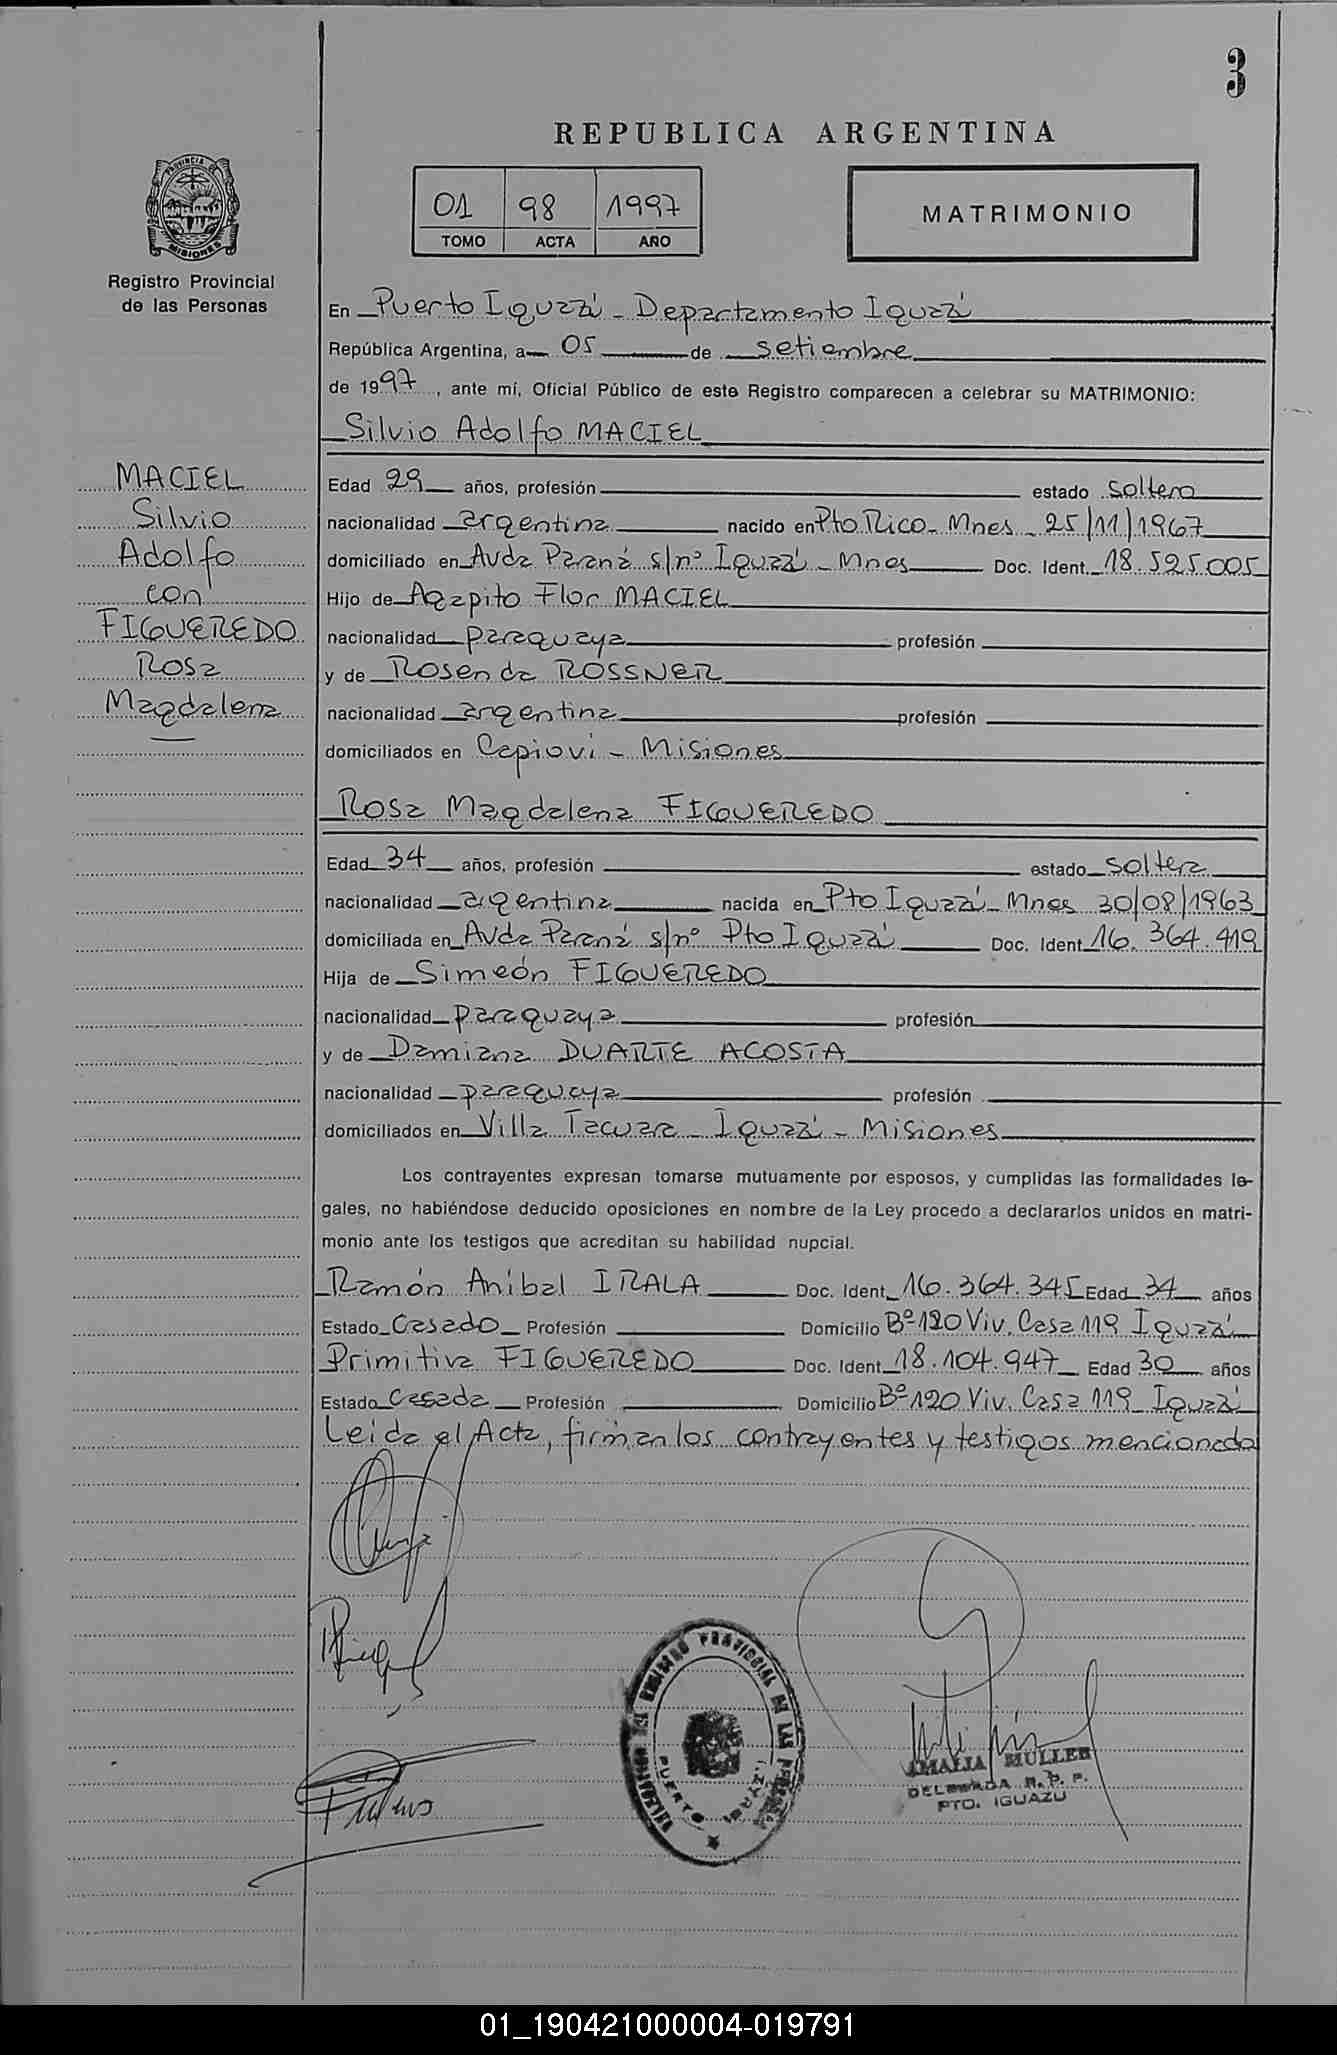 3
REPUBLICA ARGENTINA
01 98 1997
TOMO ACTA AÑO
MATRIMONIO
PROVINCIA DE
MISIONES
Registro Provincial
de las Personas
En Puerto Iguazú - Departamento Iguazú
República Argentina, a 05 de setiembre
de 1997, ante mí, Oficial Público de este Registro comparecen a celebrar su MATRIMONIO:
Silvio Adolfo MACIEL
MACIEL
Silvio
Adolfo
con
FIGUEREDO
Rosa
Magdalena
Edad 29 años, profesión estado soltero
nacionalidad argentina nacido en Pto Rico - Mnes - 25/11/1967
domiciliado en Avda Paraná s/nº Iguazú - Mnes Doc. Ident. 18.525.005
Hijo de Agapito Flor MACIEL
nacionalidad paraguaya profesión
y de Rosenda ROSSNER
nacionalidad argentina profesión
domiciliados en Capioví - Misiones
Rosa Magdalena FIGUEREDO
Edad 34 años, profesión estado soltera
nacionalidad argentina nacida en Pto Iguazú - Mnes 30/08/1963
domiciliada en Avda Paraná s/nº Pto Iguazú Doc. Ident 16.364.419
Hija de Simeón FIGUEREDO
nacionalidad paraguaya profesión
y de Damiana DUARTE ACOSTA
nacionalidad paraguaya profesión
domiciliados en Villa Tacuara - Iguazú - Misiones
Los contrayentes expresan tomarse mutuamente por esposos, y cumplidas las formalidades le-
gales, no habiéndose deducido oposiciones en nombre de la Ley procedo a declararlos unidos en matri-
monio ante los testigos que acreditan su habilidad nupcial.
Ramón Anibal IRALA Doc. Ident. 16.364.345 Edad 34 años
Estado Casado Profesión Domicilio Bº 120 Viv. Casa 119 Iguazú
Primitiva FIGUEREDO Doc. Ident 18.104.947 Edad 30 años
Estado Casada Profesión Domicilio Bº 120 Viv. Casa 119 Iguazú
Leida el Acta, firman los contrayentes y testigos mencionado
REGISTRO PROVINCIAL DE LAS
PUERTO
AMALIA MULLER
DELEGADA R. P. P.
PTO. IGUAZU
01_190421000004-019791